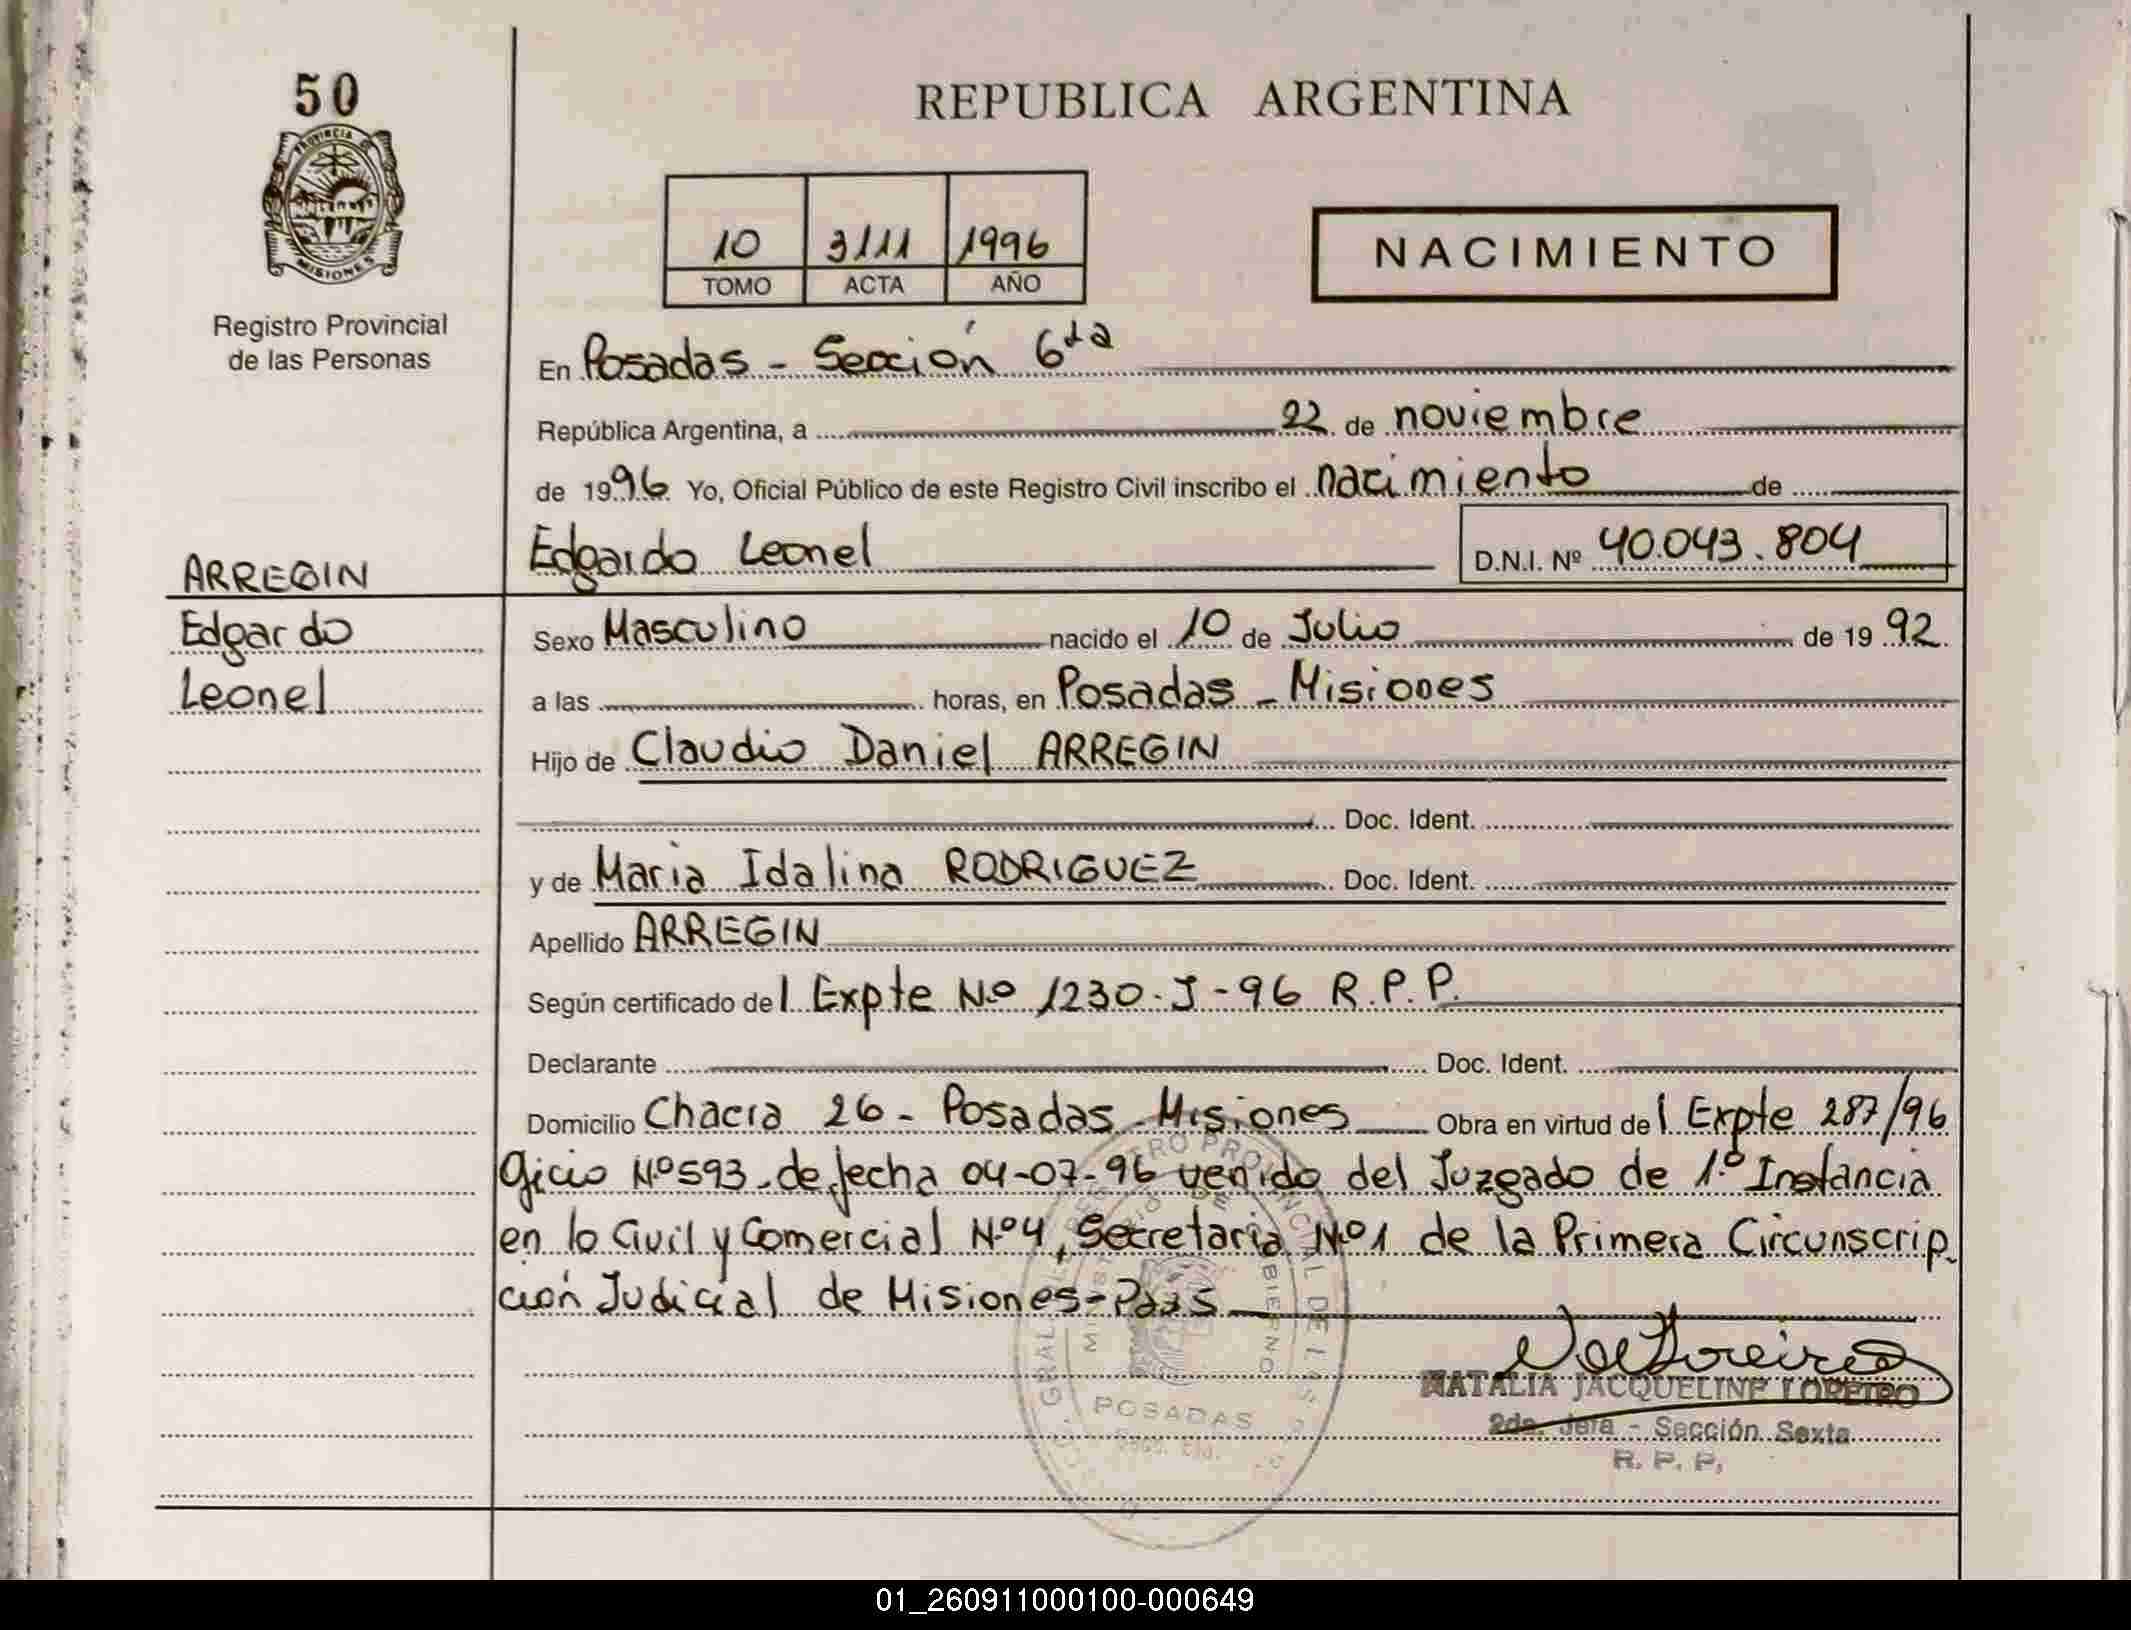 50
PROVINCIA DE
MISIONES
Registro Provincial
de las Personas
REPUBLICA ARGENTINA
10 3111 1996
TOMO ACTA AÑO
NACIMIENTO
En Posadas - Sección 6ta
República Argentina, a 22 de noviembre
de 1996 Yo, Oficial Público de este Registro Civil inscribo el nacimiento de
Edgardo Leonel D.N.I. Nº 40.043.804
ARREGIN
Edgardo
Leonel
Sexo Masculino nacido el 10 de Julio de 1992.
a las horas, en Posadas - Misiones
Hijo de Claudio Daniel ARREGIN
Doc. Ident.
y de Maria Idalina RODRIGUEZ Doc. Ident.
Apellido ARREGIN
Según certificado del Expte Nº 1230-J-96 R.P.P.
Declarante Doc. Ident.
Domicilio Chacra 26 - Posadas - Misiones Obra en virtud del Expte 287/96
Oficio Nº 593 de fecha 04-07-96 venido del Juzgado de 1º Instancia
en lo Civil y Comercial Nº 4, Secretaria Nº 1 de la Primera Circunscrip
ción Judicial de Misiones - Pdas
NATALIA JACQUELINE LOREIRO
2da. Jefa - Sección Sexta
R. P. P.
REGISTRO PROVINCIAL DE LAS
MINISTERIO DE GOBIERNO
POSADAS
01_260911000100-000649